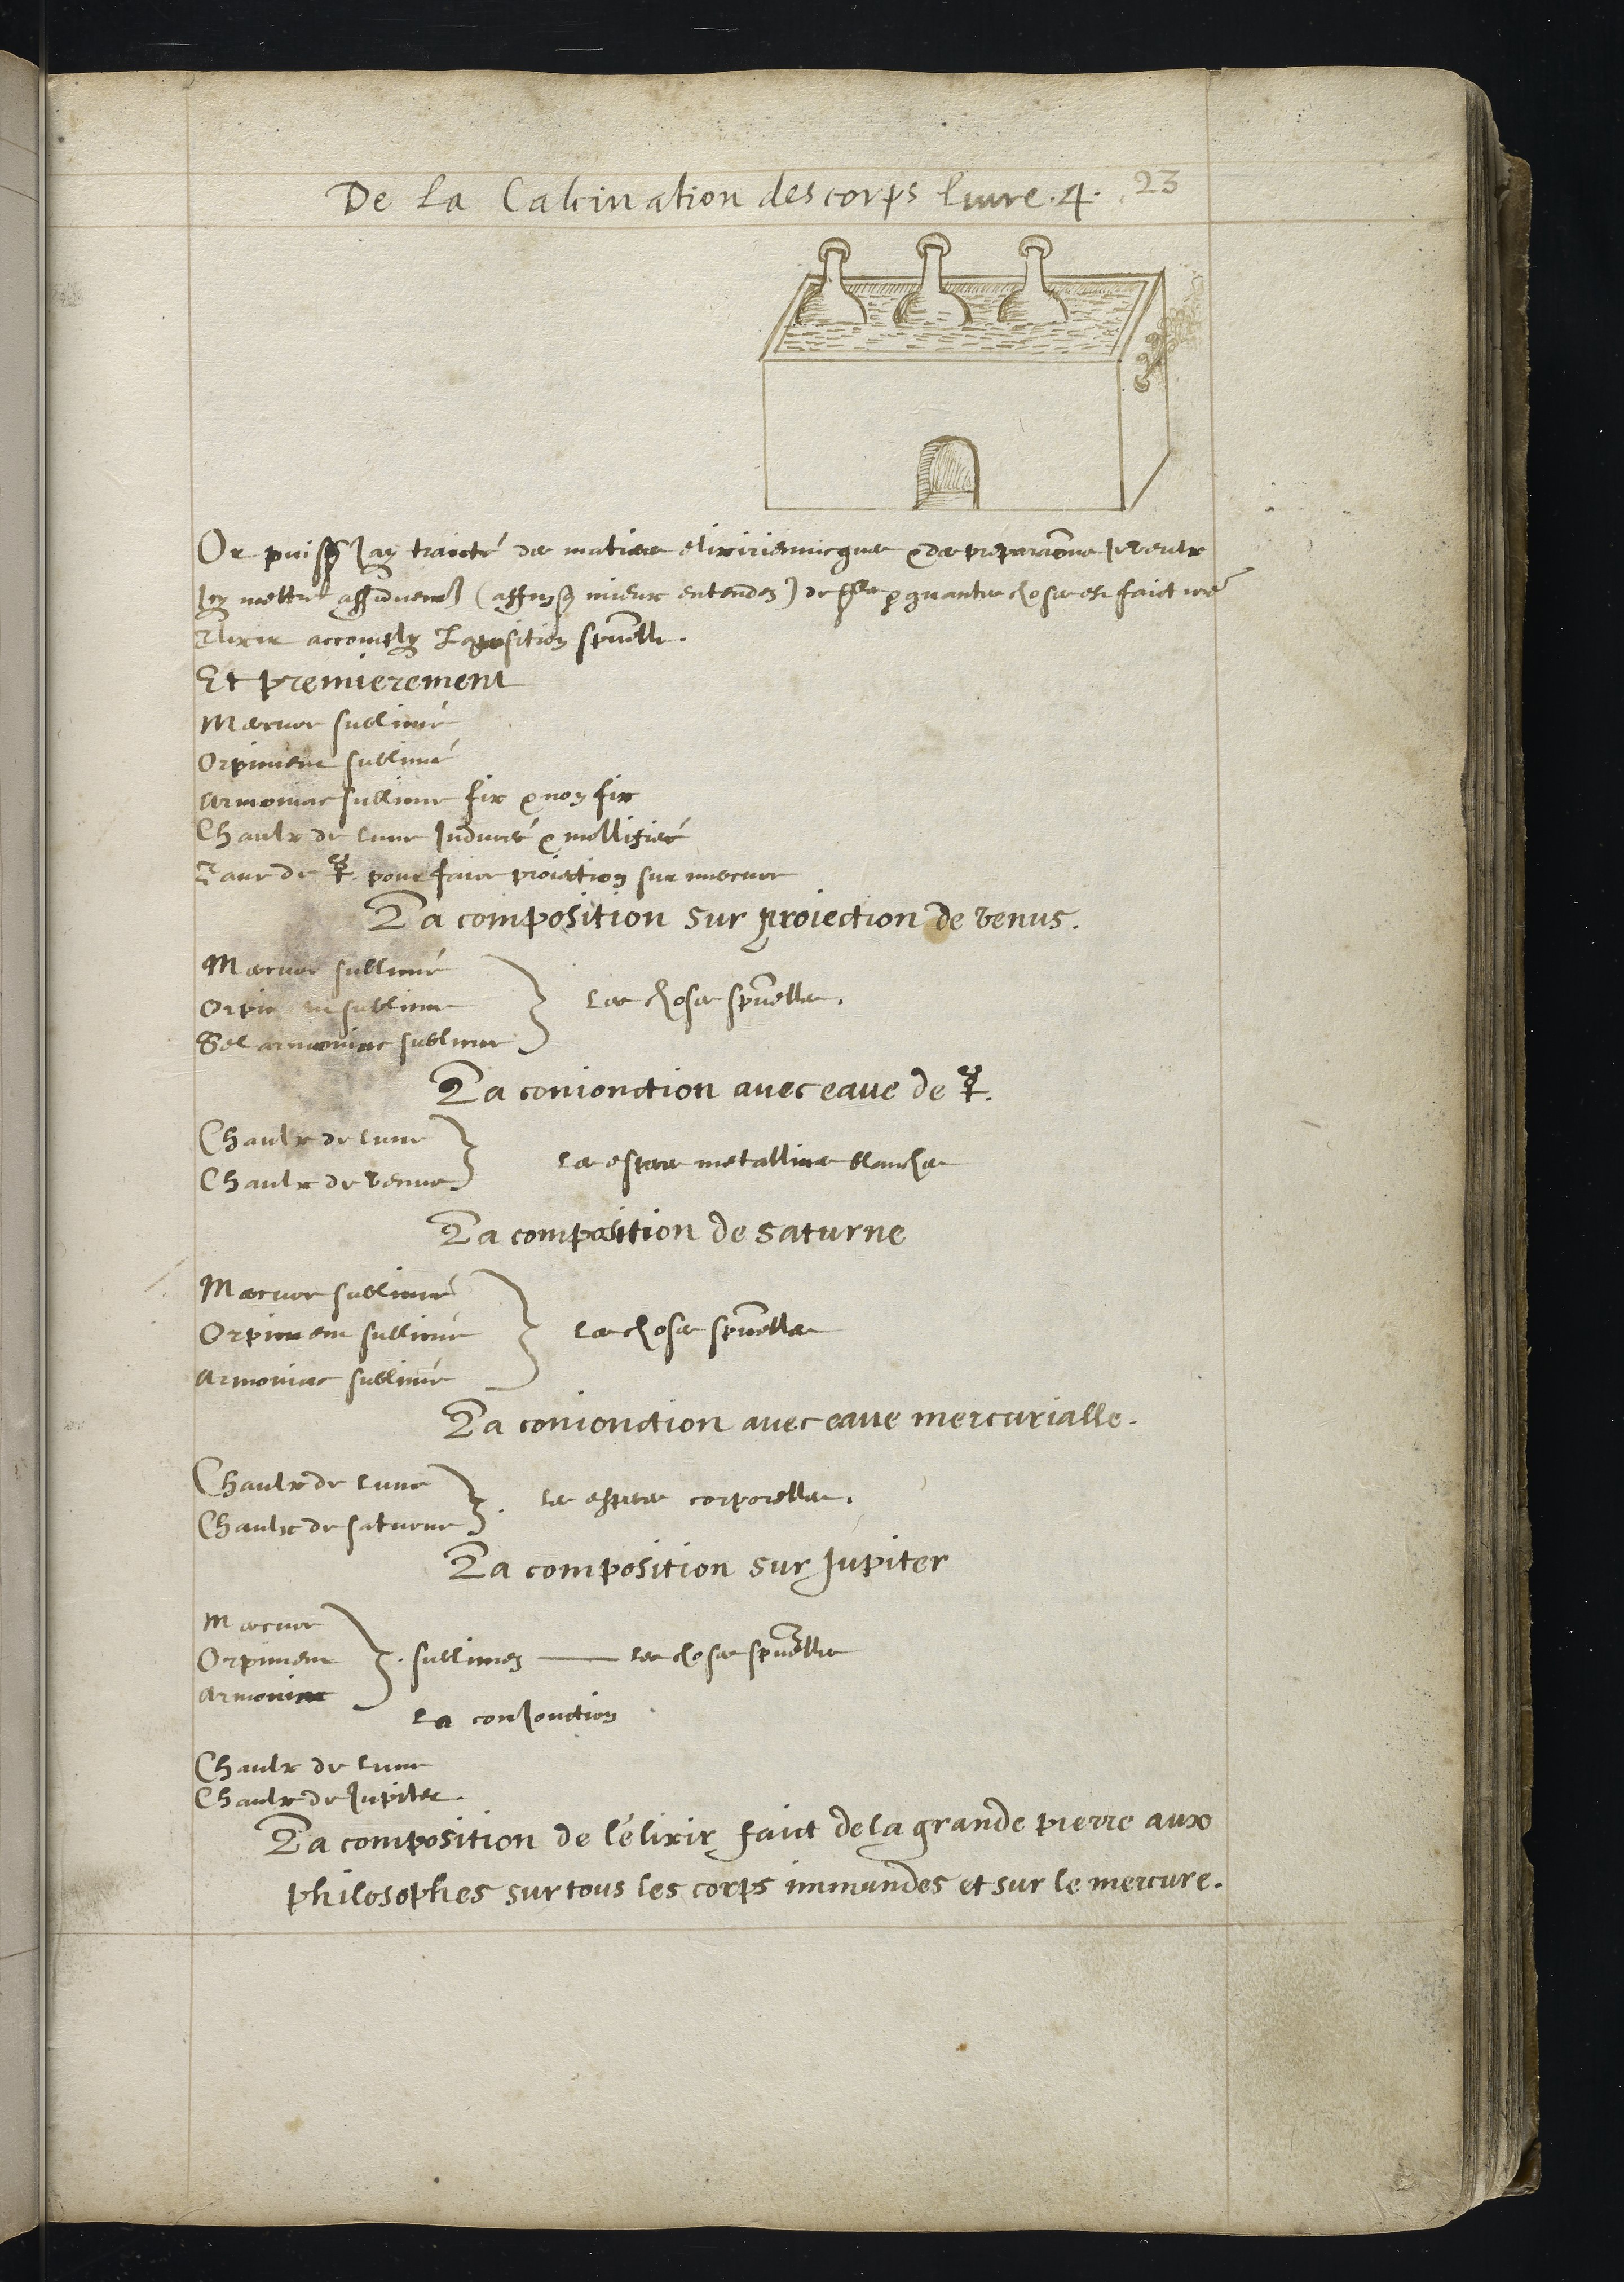 De La Calcination des corps livre .4. 23
Or puisq Jay traicté des matieres elixiriennicques & des preparaõns Je veulx
Icy mettre (affinq mieux entendez) de quantes choses est faict
Elixir accomply sp̃uelle.
Et premierement
Mercure sublimé
Orpiment sublimé
Armoniac sublime fix & non fix
Chaulx de lune Induree & mollifiee
Eaue de ☿ pour faire proiection sur mercure
La composition sur proiection de venus.
Mercure sublimé
Orpiment sublime
Sel armoniac sublime
Les choses sp̃uelles.
La conionction avec eaue de ☿.
Chaulx de lune
Chaulx de venus
Les especes metallines blanches
La composition de saturne
Mercure sublimé
Orpiment sublimé
Armoniac sublimé
Les choses sp̃uelles
La conionction avec eaue mercurialle.
Chaulx de lune
Chaulx de saturne
Les especes corporelles.
La composition sur Jupiter
Mercure
Orpiment
Armoniac
sublimez — les choses sp̃uelles
La conJonction
Chaulx de lune
Chaulx de Jupiter.
La composition de lélixir faict de la grande pierre aux
philosophes sur tous les corps immundes et sur le mercure.